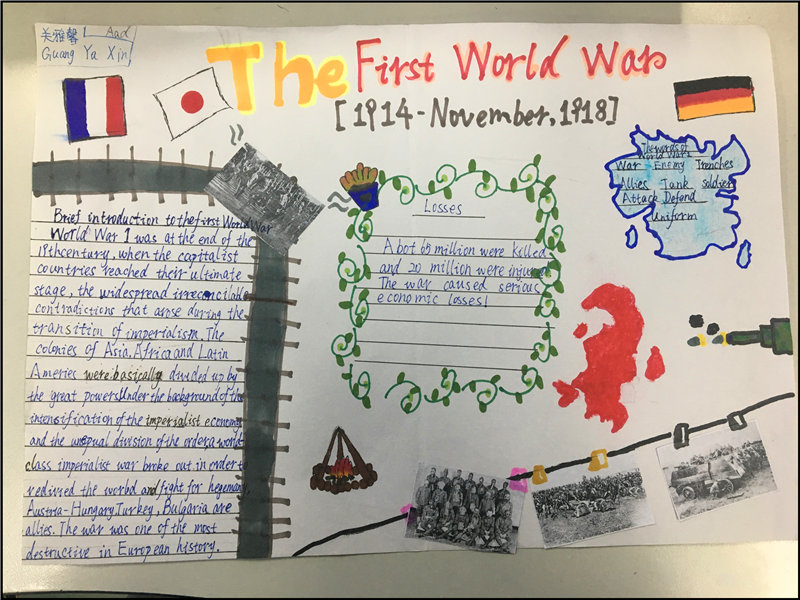 美雅馨 Aad
Guang Ya Xin
The First World War
[1914-November,1918]
Brief introduction to the first World War
World War 1 was at the end of the
19th century, when the capitalist
countries reached their ultimate
stage, the widespread irreconcilable
contradictions that arose during the
transition of imperialism. The
colonies of Asia, Africa and Latin
Americs were basically divided up by
the great powers. Under the background of the
intensification of the imperialist economy
and the unequal division of the order, a world
class imperialist war broke out in order to
redivised the world and fight for hegemony
Austria-Hungary, Turkey, Bulgaria are
allies. The war was one of the most
destructive in European history.
Losses
Abot 65 million were killed
and 20 million were injured
The war caused serious
economic losses!
The words of
World War 1
War Enemy Trenches
Allies Tank soldier
Attack Defend
Uniform